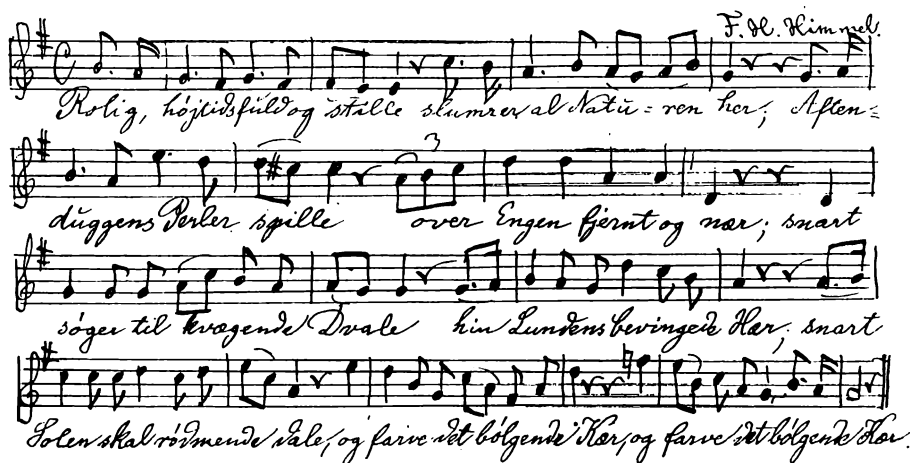 F. H. Himmel.
Rolig, højtidsfuld og stille slumrer al Natu-ren her; Aften-
3
duggens Perler spille over Engen fjernt og nær; snart
søger til kvægende Dvale hin Lundens bevingede Hær; snart
Solen skal rødmende dale, og farve det bølgende Kær, og farve det bølgende Kær.